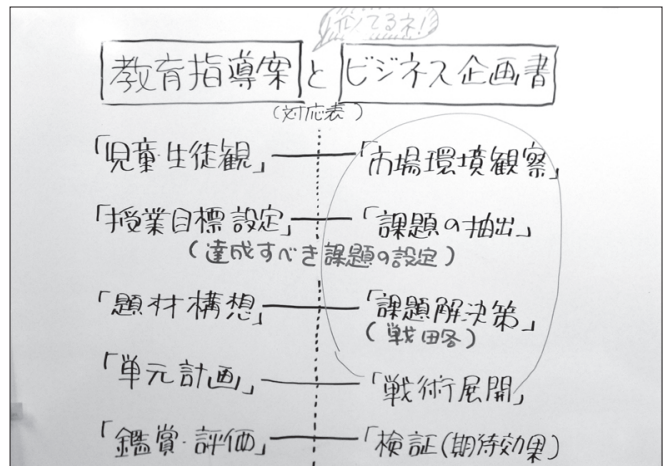 似てるネ!
教育指導案 と ビジネス企画書
(対応表)
「児童・生徒観」 「市場環境観察」
「授業目標設定」 「課題の抽出」
(達成すべき課題の設定)
「題材構想」 「課題解決策」
(戦略)
「単元計画」 「戦術展開」
「鑑賞・評価」 「検証(期待効果)